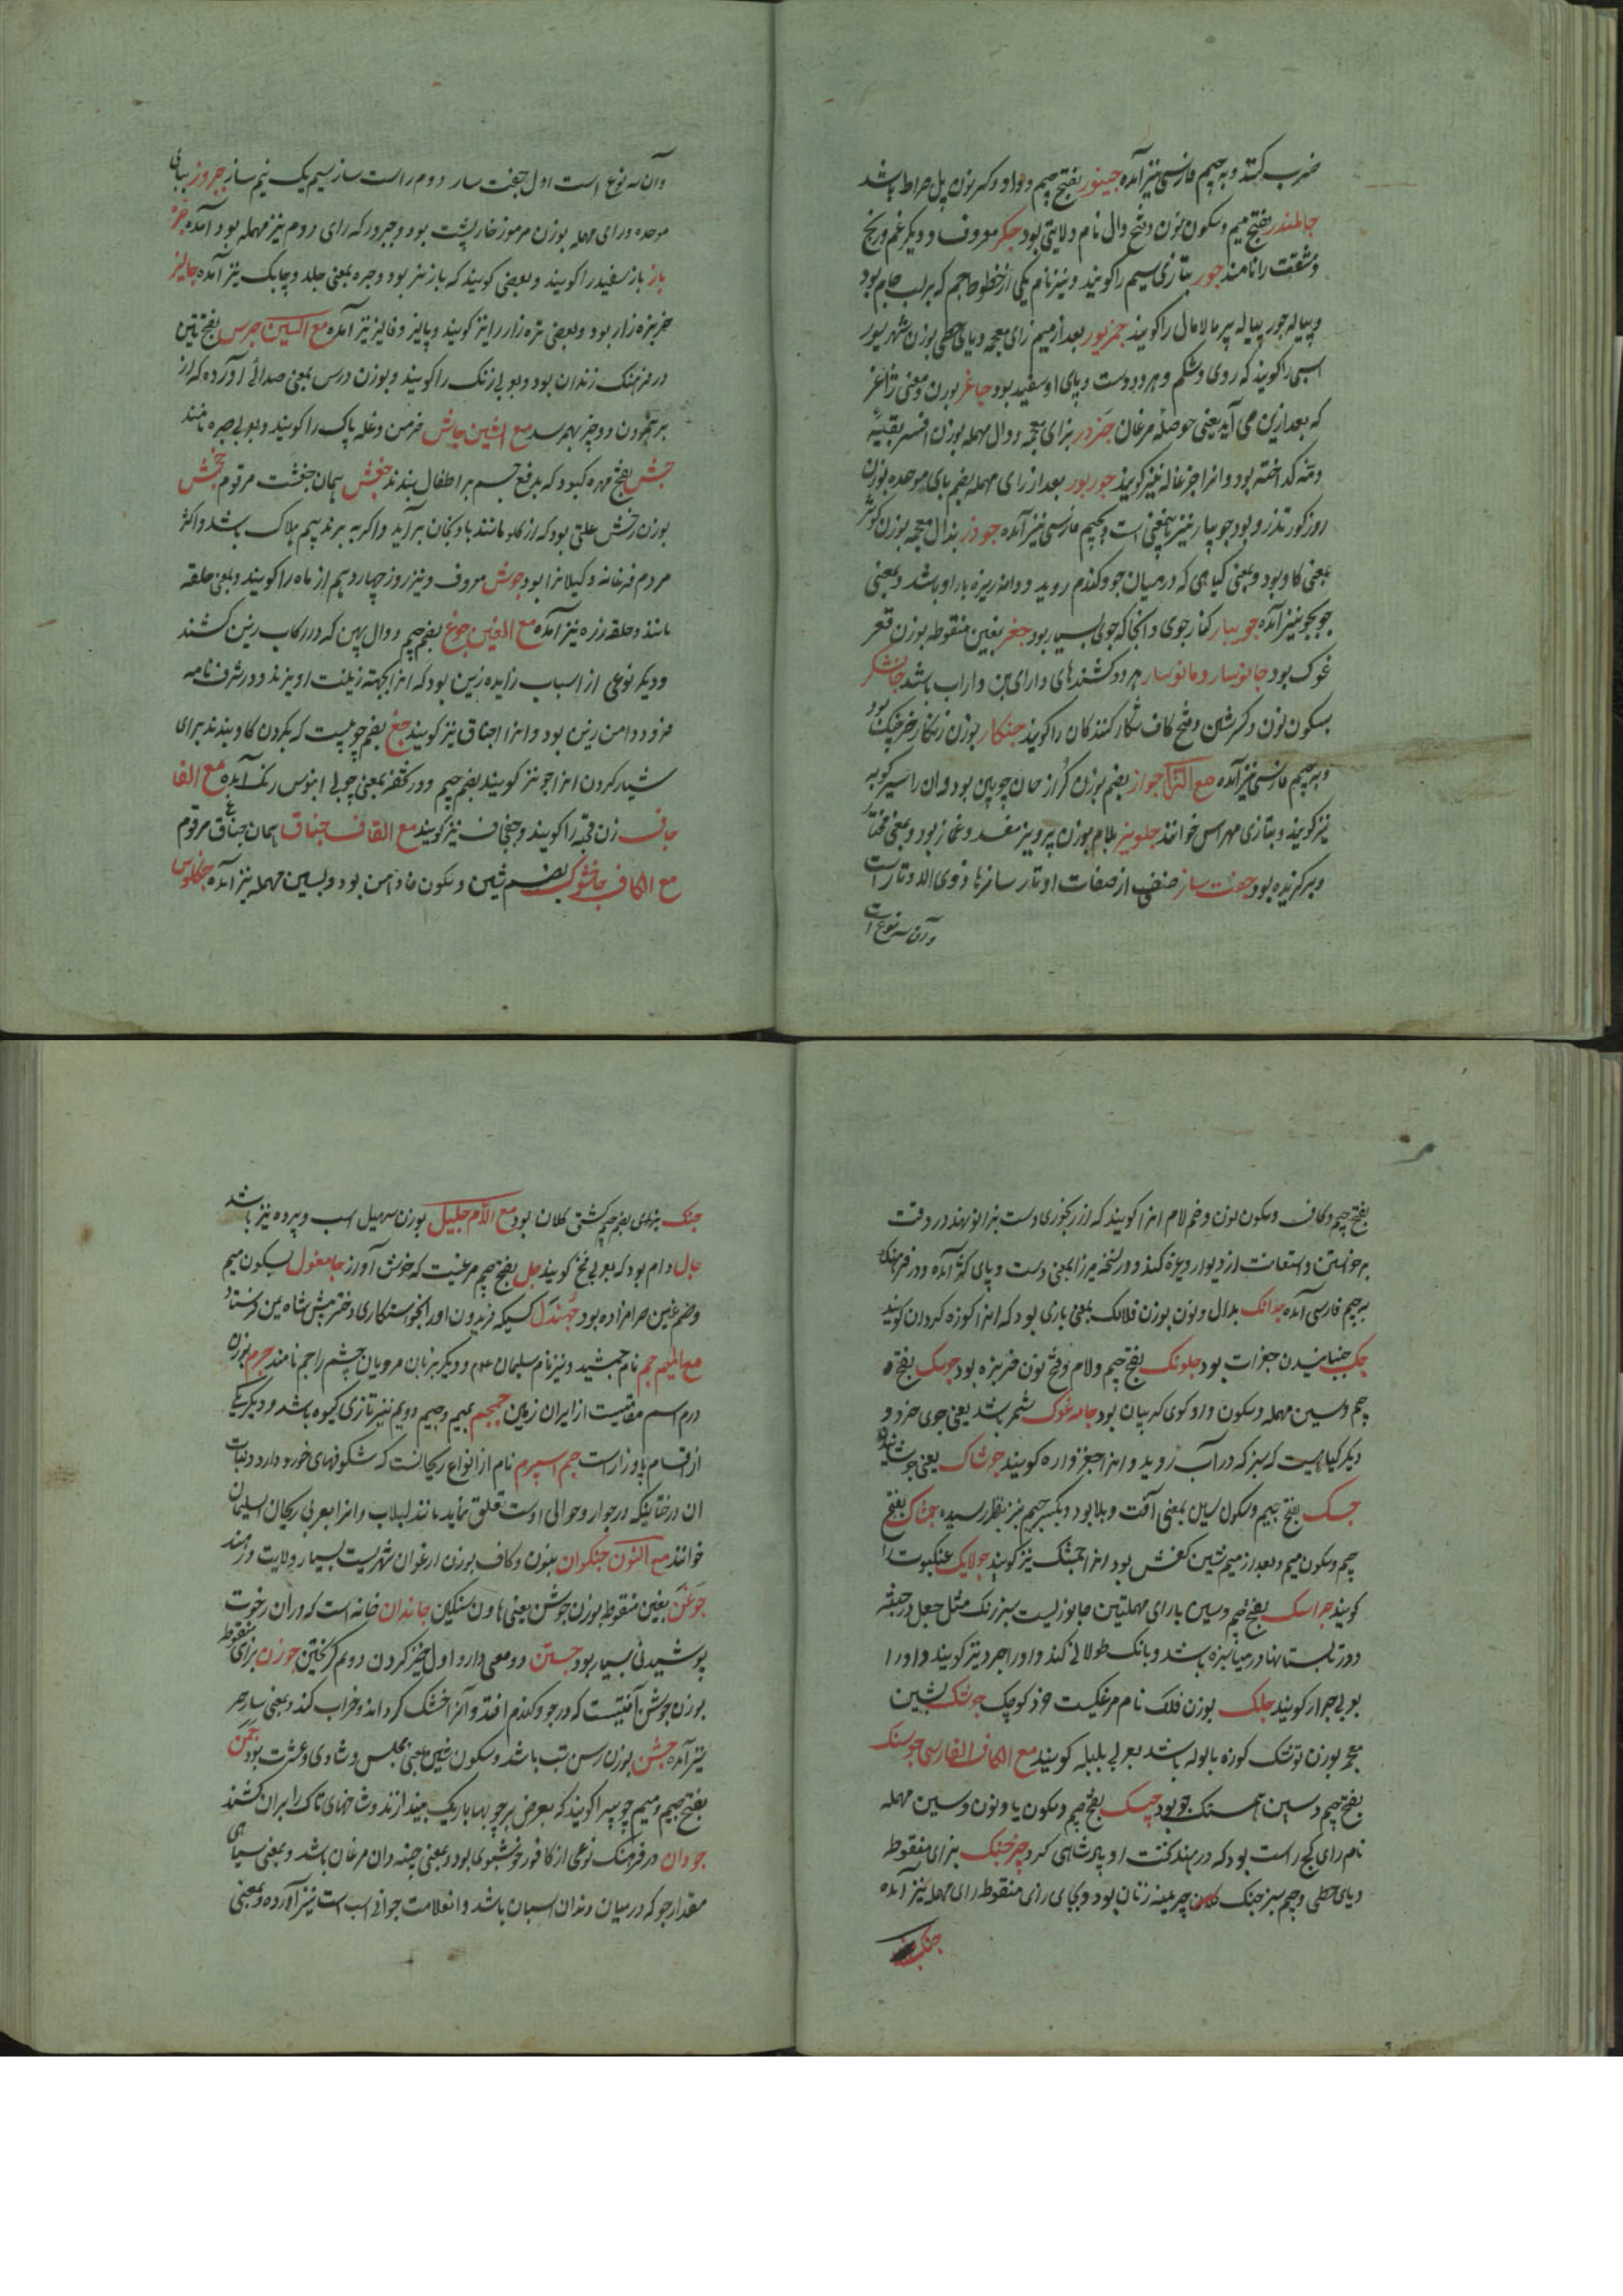 ضرب کنند و بجیم فارسی نیز آمده جینور بفتح جیم و واو و کسر نون پل صراط باشد
جالمندر بفتح میم و سکون نون و فتح دال نام ولایتی بود جکر معروف و دیگر غم و رنج
و مشقت را نامند جور بتازی سیم را گویند و نیز نام یکی از خطوط جم که بر لب جام بود
و پیاله جور پیاله پر مالامال را گویند جمزیور بعد از میم زای معجمه و یای حطی بوزن شهریور
اسبی را گویند که روی و شکم و هر دو دست و پای او سفید بود جاغر بوزن و معنی ژاغر
که بعد ازین می آید یعنی حوصله مرغان جزدر بزای معجمه و دال مهمله بوزن افسر بقیه
و دنبه گداخته بود و انرا جزغاله نیز گویند جوربور بعد از رای مهمله بضم بای موحده بوزن
روز کور تذرو بود جوپار نیز باینمعنی است و بجیم فارسی نیز آمده جوذر بذال معجمه بوزن کوثر
بمعنی گاو بود و بمعنی گیاهی که در میان جو و گندم روید و دانه ریزه بار او باشد و بمعنی
جوبجو نیز آمده جویبار کنار جوی و آنجا که جوی بسیار بود جغر بغین منقوطه بوزن قعر
غوک بود جانوسار و مانوسار هر دو کشندهای دارای بن داراب باشد جانشکر
بسکون نون و کسر شین و فتح کاف شکار کنندگان را گویند جنکار بوزن زنکار خرچنک بود
و بجیم فارسی نیز آمده مع الزا جواز بضم بوزن گراز هاون چوبین بود و ان را سیرکوبه
نیز گویند و بتازی مهراس خوانند جلویز بلام بوزن پرویز مفسد و غماز بود و بمعنی مختار
و برگزیده بود جفت ساز صنفی از صفات اوتار سازها ذوی الاوتار است
وآن سه نوع است
وآن سه نوع است اول جفت ساز دوم راست ساز سیم یک نیم ساز جروز ببای
موحده و رای مهمله بوزن مرموز خارپشت بود و جبرور که رای دوم نیز مهمله بود آمده جره
باز باز سفید را گویند و بعضی گویند که باز نر بود و جره بمعنی جلد و چابک نیز آمده جالیز
خربزه زار بود و بعضی تره زار را نیز گویند و پالیز و فالیز نیز آمده مع السین جرس بفتحتین
در فرهنک زندان بود و بعربی زنک را گویند و بوزن درس بمعنی صدائی آورده که از
برهم خوردن دو چیز بهم رسد مع الشین جاش خرمن و غله پاک را گویند و بعربی صبره نامند
جش بفتح مهره کبود که بدفع چشم بر اطفال بندند جغش همان جغشت مرقوم جخش
بوزن رخش علتی بود که از گلو مانند بادنجان برآید و اگر به برند بیم هلاک باشد و اکثر
مردم فرغانه و گیلانرا بود جوش معروف و نیز روز چهاردهم از ماه را گویند و بمعنی حلقه
مانند و حلقه زره نیز آمده مع الغین جوغ بضم جیم دوال پهن که در رکاب زین کشند
و دیگر نوعی از اسباب زایده زین بود که انرا بجهته زینت اویزند و در شرف نامه
فرود دامن زین بود و انرا اجناق نیز گویند جغ بضم چوبیست که بگردن گاو بندند برای
شیار کردن انرا جو نیز گویند بضم جیم و در کنفز بمعنی چوبی ابنوس رنک آمده مع الفا
جاف زن قحبه را گویند و جفجاف نیز گویند مع القاف جناق همان جناغ مرقوم
مع الکاف جاخشوک بضم شین و سکون خا داس بود و بسین مهمله نیز آمده جنکلوس
بفتح جیم و کاف و سکون نون و ضم لام انرا گویند که از رنجوری دست بزانو نهد در وقت
برخواستن و استعانت از دیوار و غیره کند و در نسخه میرزا بمعنی دست و پای کژ آمده و در فرهنک
بجیم فارسی آمده جدانک بدال و نون بوزن فلانک بمعنی بازی بود که انرا کوزه گردان گویند
جک جنبانیدن جغرات بود جلونک بفتح جیم و لام و فتح نون خربزه بود جوسک بفتحه
جیم و سین مهمله و سکون واو گوی گریبان بود جامه غوک شمر باشد یعنی جوی خرد و
دیگر گیاهیست که سبز که در آب روید و انرا جغزواره گویند جوشاک یعنی جوشانیده
جسک بفتح جیم و سکون سین بمعنی آفت و بلا بود و بکسر جیم نیز بنظر رسیده جمشاک بفتح
جیم و سکون میم و بعد از میم شین کفش بود انرا جمشک نیز گویند جولاک عنکبوت را
گویند جراسک بفتح جیم و سین با رای مهملتین جانوریست سبز رنک مثل جعل در جثه
و در تابستانها در میان سبزه باشد و بانک طولانی کند و او را جرد نیز گویند و او را
بعربی جرار گویند جلک بوزن فلک نام مرغکیست خرد کوچک جوشک بشین
معجمه بوزن توشک کوزه با لوله باشد بعربی بلبله گویند مع الکاف الفارسی جوسنک
بفتح جیم و سین همسنک جو بود جیسک بفتح جیم و سکون یا و نون و سین مهمله
نام رای کج راست بود که در هند گشت او پادشاهی کرد جزجنک بزای منقوطه
و یای حطی و جیم سبز جنک چرمینه زنان بود و بجای زای منقوطه رای مهمله نیز آمده
جنک
جنک بزای بضم جیم کشتی کلان بود مع اللام جلبیل بوزن سهیل اسب و پرده نیز باشد
جال دام بود که بعربی فخ گویند جل بفتح جیم مرغیست که خوش آواز جامغول بسکون میم
و ضم غین حرامزاده بود جهندل کسیکه فریدون او را بخواستکاری دختر پیش شاه یمن فرستاد
مع المیم جم نام جمشید و نیز نام سلیمان عم و دیگر بزبان مرویان چشم را جم نامند جرم بوزن
درم اسم مقامیست از ایران زمین جمجم بمیم و جیم دویم نیز بتازی گیوه باشد و دیگر یکی
از اقسام پاوزار است جم اسپرم نام از انواع ریحانست که شکوفهای خورد دارد و نبات
ان درختانیکه در جوار و حوالی اوست تعلق نماید مانند لبلاب و انرا بعربی ریحان سلیمان
خوانند مع النون جنکوان بنون و کاف بوزن ارغوان شهریست بسیار ولایت در هند
جوغن بغین منقوطه بوزن جوشن یعنی هاون سنگین جامدان خانه است که در ان رخوت
پوشیدنی بسیار بود جستن دو معنی دارد اول خیز کردن دوم گریختن جوزن بزای منقوطه
بوزن جوشن آفتیست که در جو و گندم افتد و آنرا خشک گرداند و خراب کند و بمعنی ساحر
نیز آمده جشن بوزن رسن تب باشد و بسکون شین بمعنی مجلس و شادی و عشرت بود جمن
بفتح جیم و میم چوبیرا گویند که بعرض بر چوبها باریک بیندازند و شاخهای تاک را بران کشند
جودان در فرهنک نوعی از کافور خوشبوی بود و بمعنی چینه دان مرغان باشد و بمعنی سیاهی
مقدار جو که در میان دندان اسبان باشد و انعلامت جوانی اسب است نیز آورده و بمعنی